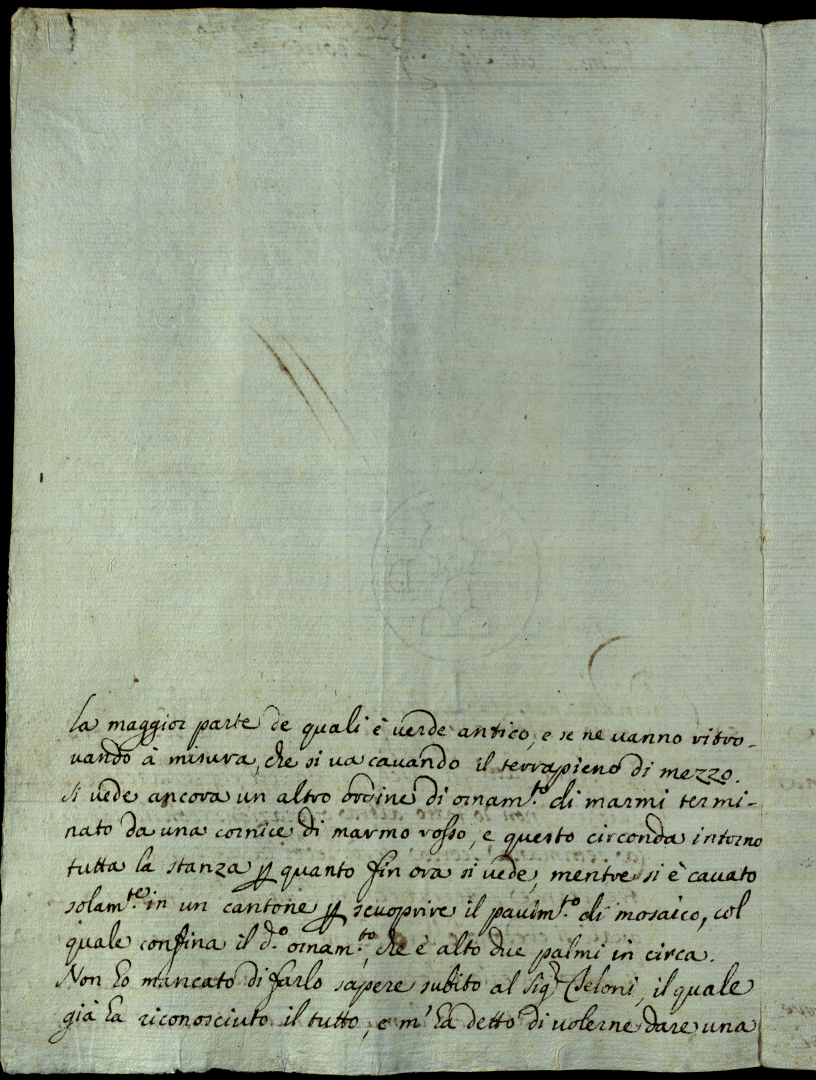 la maggior parte de quali è verde antico, e se ne vanno ritro-
vando à misura, che si va cavando il terrapieno di mezzo.
Si vede ancora un altro ordine di ornam.to di marmi termi-
nato da una cornice di marmo rosso, e questo circonda intorno
tutta la stanza p quanto fin ora si vede, mentre si è cavato
solam.te in un cantone p scuoprire il pavim.to di mosaico, col
quale confina il d.o ornam.to, che è alto due palmi in circa.
Non ho mancato di farlo sapere subito al Sig.r Beloni, il quale
già ha riconosciuto il tutto, e m'ha detto di volerne dare una